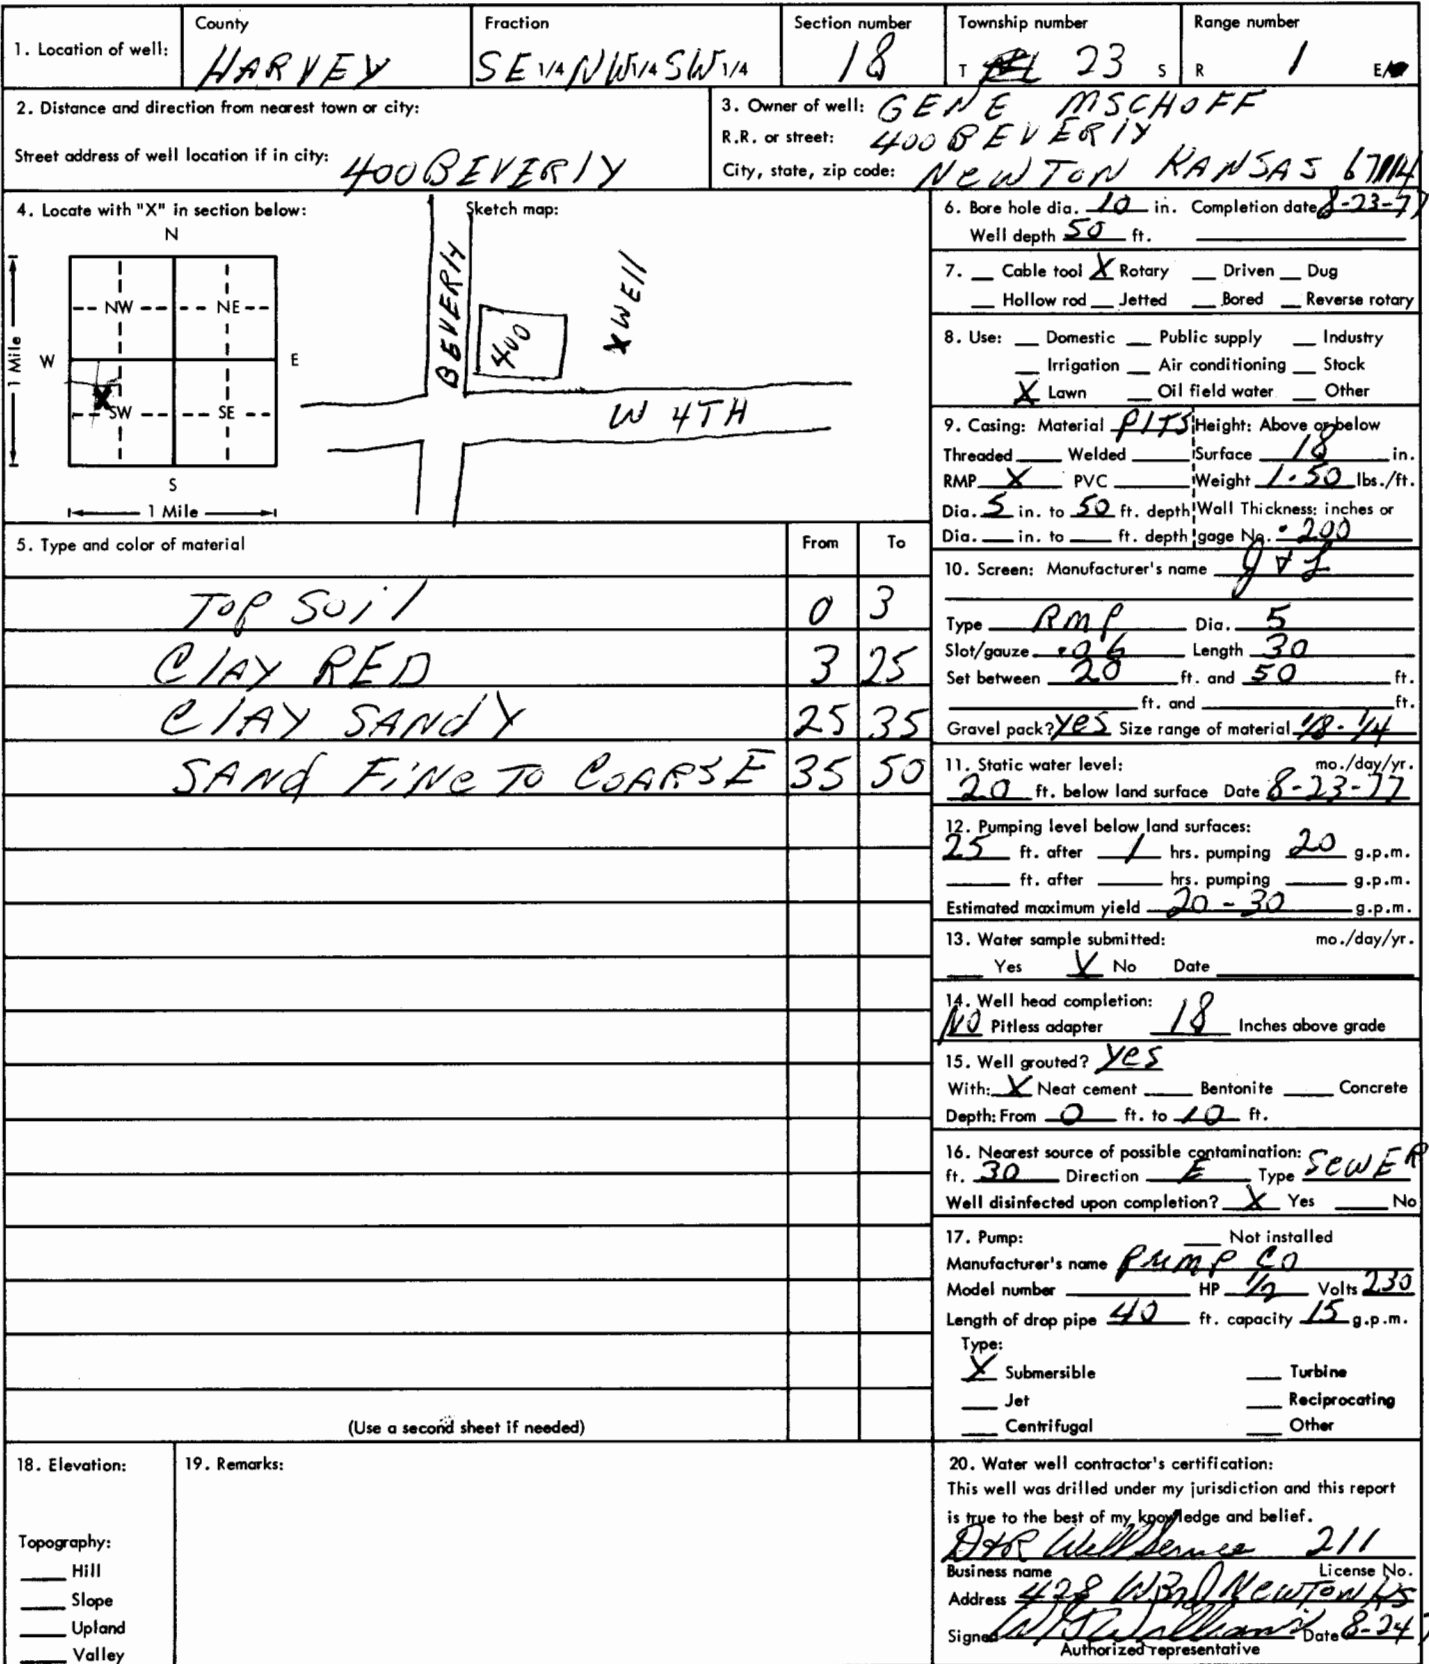 1. Location of well: County HARVEY Fraction SE 1/4 NW 1/4 SW 1/4 Section number 18 Township number T 23 S Range number R 1 E/
2. Distance and direction from nearest town or city:
Street address of well location if in city: 400 BEVERLY
3. Owner of well: GENE MSCHOFF
R.R. or street: 400 BEVERLY
City, state, zip code: NEWTON KANSAS 67114
4. Locate with "X" in section below:
N
NW NE
W E
X
SW SE
S
1 Mile
1 Mile
Sketch map:
BEVERLY
400
X WEll
W 4TH
5. Type and color of material From To
TOP SOIL 0 3
CLAY RED 3 25
CLAY SANDY 25 35
SAND FINE TO COARSE 35 50
(Use a second sheet if needed)
6. Bore hole dia. 10 in. Completion date 8-23-77
Well depth 50 ft.
7. Cable tool X Rotary Driven Dug
Hollow rod Jetted Bored Reverse rotary
8. Use: Domestic Public supply Industry
Irrigation Air conditioning Stock
X Lawn Oil field water Other
9. Casing: Material PlTS Height: Above or below
Threaded Welded Surface 18 in.
RMP X PVC Weight 1.50 lbs./ft.
Dia. 5 in. to 50 ft. depth Wall Thickness: inches or
Dia. in. to ft. depth gage No. .200
10. Screen: Manufacturer's name
Type RMP Dia. 5
Slot/gauze .06 Length 30
Set between 20 ft. and 50 ft.
ft. and ft.
Gravel pack? yes Size range of material 1/8-1/4
11. Static water level: mo./day/yr.
20 ft. below land surface Date 8-23-77
12. Pumping level below land surfaces:
25 ft. after 1 hrs. pumping 20 g.p.m.
ft. after hrs. pumping g.p.m.
Estimated maximum yield 20-30 g.p.m.
13. Water sample submitted: mo./day/yr.
Yes X No Date
14. Well head completion:
NO Pitless adapter 18 Inches above grade
15. Well grouted? yes
With: X Neat cement Bentonite Concrete
Depth: From 0 ft. to 10 ft.
16. Nearest source of possible contamination:
ft. 30 Direction E Type SEWER
Well disinfected upon completion? X Yes No
17. Pump: Not installed
Manufacturer's name PUMP CO
Model number HP 1/2 Volts 230
Length of drop pipe 40 ft. capacity 15 g.p.m.
Type:
X Submersible Turbine
Jet Reciprocating
Centrifugal Other
18. Elevation:
Topography:
Hill
Slope
Upland
Valley
19. Remarks:
20. Water well contractor's certification:
This well was drilled under my jurisdiction and this report
is true to the best of my knowledge and belief.
D&R Well Service 211
Business name License No.
Address 428 W 3rd Newton KS
Signed Date 8-24
Authorized representative